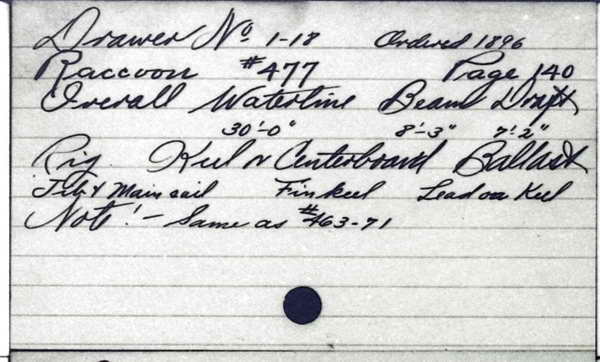 Drawer No. 1-18 Ordered 1896
Raccoon #477 Page 140
Overall Waterline Beam Draft
30'-0" 8'-3" 7'-2"
Rig Keel or Centerboard Ballast
Jib & Mainsail Fin keel Lead on Keel
Note:- Same as #463-71